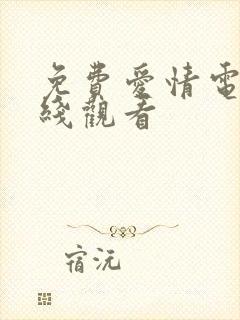 免費愛情電
綫觀看
宿沅